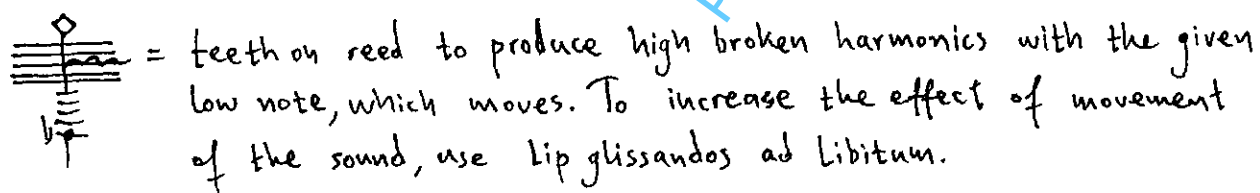 = teeth on reed to produce high broken harmonics with the given
low note, which moves. To increase the effect of movement
of the sound, use lip glissandos ad libitum.